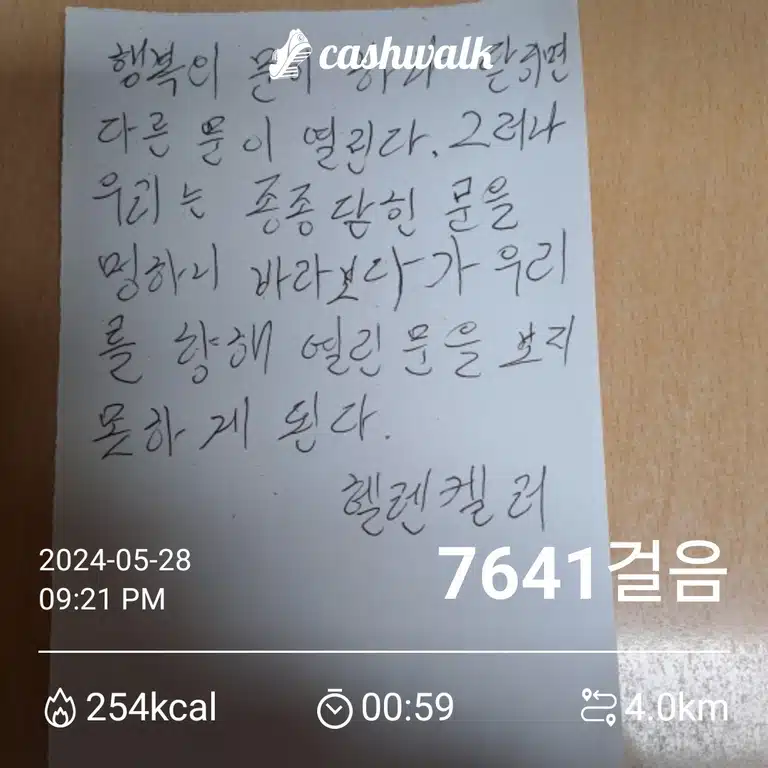 cashwalk
행복의 문이 하나 닫히면
다른 문이 열린다. 그러나
우리는 종종 닫힌 문을
멍하니 바라보다가 우리
를 향해 열린 문을 보지
못하게 된다.
헬렌켈러
2024-05-28
09:21 PM
7641걸음
254kcal
00:59
4.0km